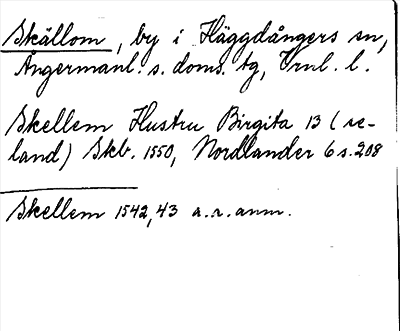 Skällom, by i Häggdångers sn,
Ångermanl. s. doms. tg, Vrnl. l.
Skellem Hustru Birgita 13 (se-
land) Skb. 1550, Nordlander 6 s. 208
Skellem 1542, 43 a. a. anm.